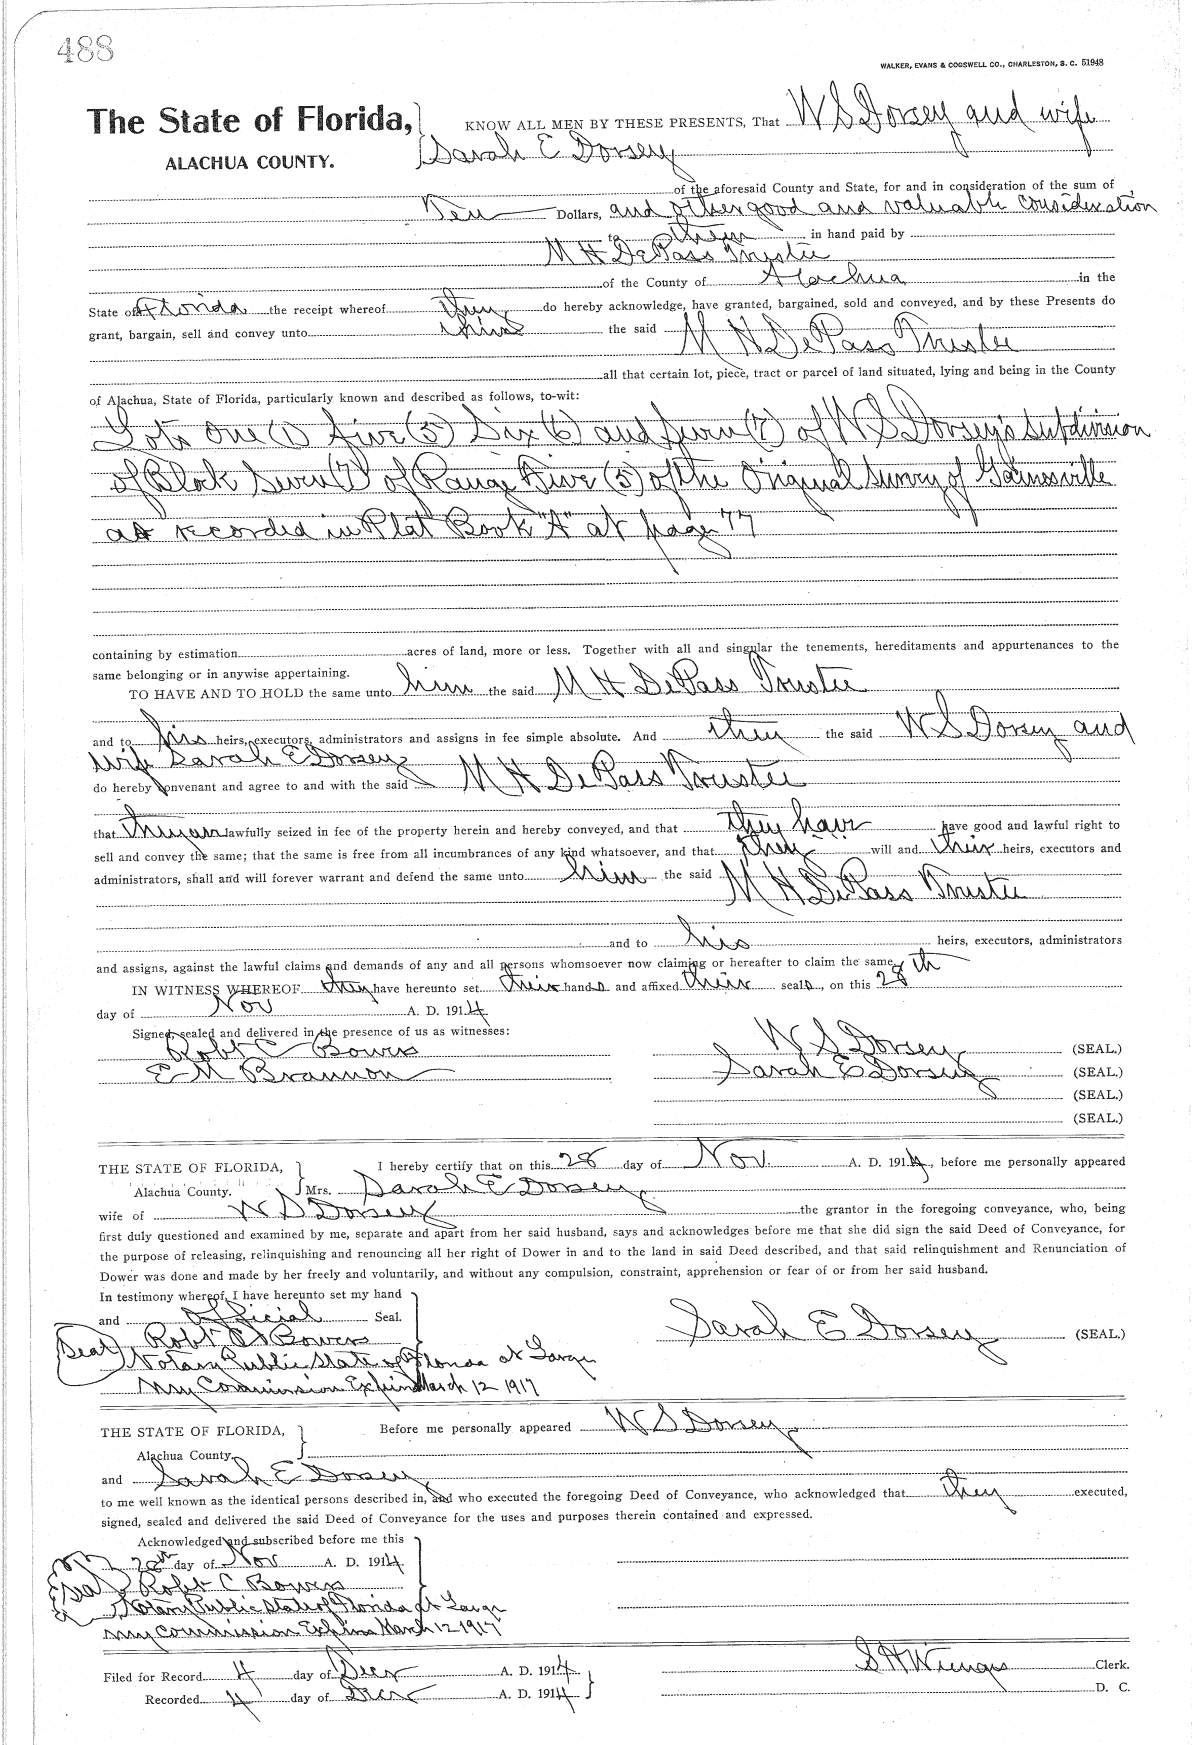 488
WALKER, EVANS & COGSWELL CO., CHARLESTON, S. C. 51948
The State of Florida, KNOW ALL MEN BY THESE PRESENTS, That W S Dorsey and wife
ALACHUA COUNTY. Sarah E Dorsey
of the aforesaid County and State, for and in consideration of the sum of
Ten Dollars, and other good and valuable consideration
to them in hand paid by
M H DePass Trustee
of the County of Alachua in the
State of Florida the receipt whereof they do hereby acknowledge, have granted, bargained, sold and conveyed, and by these Presents do
grant, bargain, sell and convey unto him the said M H DePass Trustee
all that certain lot, piece, tract or parcel of land situated, lying and being in the County
of Alachua, State of Florida, particularly known and described as follows, to-wit:
Lots One (1) Five (5) Six (6) and Seven (7) of W S Dorsey's Subdivision
of Block Seven (7) of Range Five (5) of the Original Survey of Gainesville
as recorded in Plat Book "A" at page 77
containing by estimation acres of land, more or less. Together with all and singular the tenements, hereditaments and appurtenances to the
same belonging or in anywise appertaining.
TO HAVE AND TO HOLD the same unto him the said M H DePass Trustee
and to his heirs, executors, administrators and assigns in fee simple absolute. And they the said W S Dorsey and
wife Sarah E Dorsey
do hereby convenant and agree to and with the said M H DePass Trustee
that they are lawfully seized in fee of the property herein and hereby conveyed, and that they have have good and lawful right to
sell and convey the same; that the same is free from all incumbrances of any kind whatsoever, and that they will and their heirs, executors and
administrators, shall and will forever warrant and defend the same unto him the said M H DePass Trustee
and to his heirs, executors, administrators
and assigns, against the lawful claims and demands of any and all persons whomsoever now claiming or hereafter to claim the same.
IN WITNESS WHEREOF they have hereunto set their hands and affixed their seals, on this 28th
day of Nov A. D. 1914
Signed, sealed and delivered in the presence of us as witnesses:
Robt C Bowers W S Dorsey (SEAL.)
E M Brannon Sarah E Dorsey (SEAL.)
(SEAL.)
(SEAL.)
THE STATE OF FLORIDA, I hereby certify that on this 28 day of Nov. A. D. 1914, before me personally appeared
Alachua County. Mrs. Sarah E Dorsey
wife of W S Dorsey the grantor in the foregoing conveyance, who, being
first duly questioned and examined by me, separate and apart from her said husband, says and acknowledges before me that she did sign the said Deed of Conveyance, for
the purpose of releasing, relinquishing and renouncing all her right of Dower in and to the land in said Deed described, and that said relinquishment and Renunciation of
Dower was done and made by her freely and voluntarily, and without any compulsion, constraint, apprehension or fear of or from her said husband.
In testimony whereof, I have hereunto set my hand
and official Seal.
Seal Robt C Bowers Sarah E Dorsey (SEAL.)
Notary Public State of Florida at Large
My Commission Expires March 12 1917
THE STATE OF FLORIDA, Before me personally appeared W S Dorsey
Alachua County.
and Sarah E Dorsey
to me well known as the identical persons described in, and who executed the foregoing Deed of Conveyance, who acknowledged that they executed,
signed, sealed and delivered the said Deed of Conveyance for the uses and purposes therein contained and expressed.
Acknowledged and subscribed before me this
28th day of Nov A. D. 1914
Seal Robt C Bowers
Notary Public State of Florida at Large
My Commission Expires March 12 1917
Filed for Record 4 day of Decr A. D. 1914 S H Wienges Clerk.
Recorded 4 day of Decr A. D. 1914 D. C.